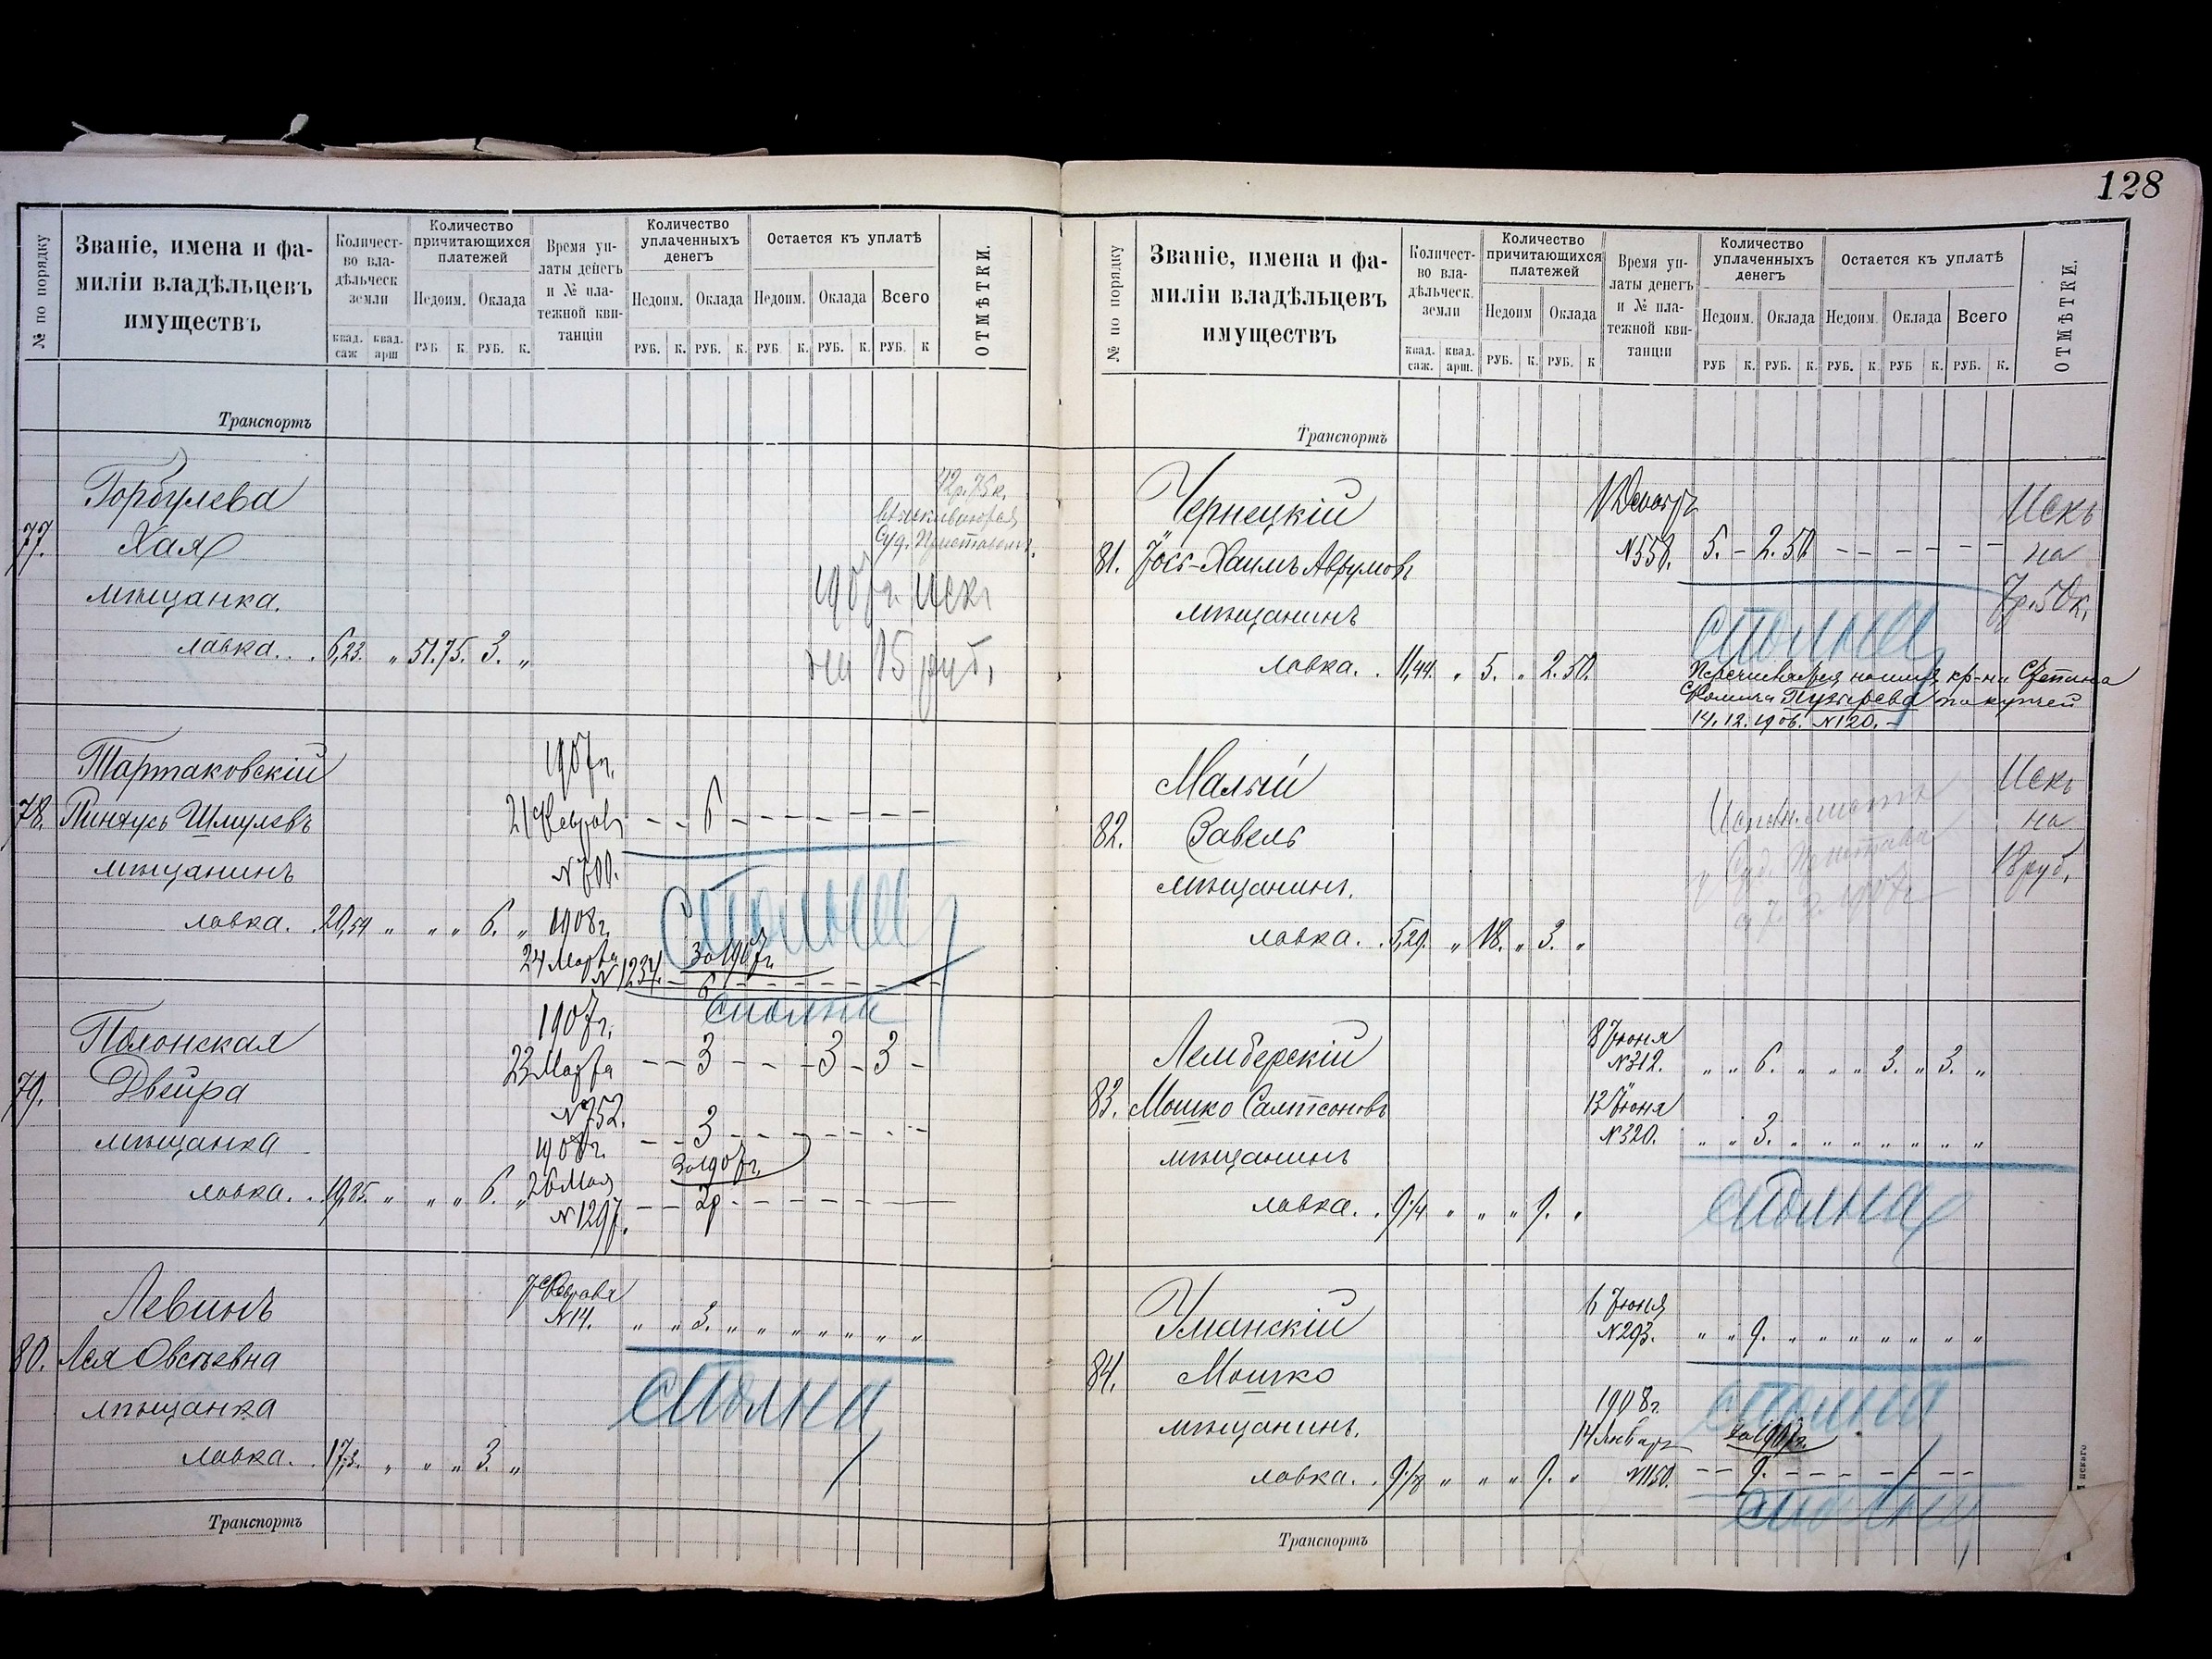 128
№ по порядку
Званіе, имена и фа-
миліи владѣльцевъ
имуществъ
Количест-
во вла-
дѣльческ
земли
квад. саж
квад. арш
Количество
причитающихся
платежей
Недоим.
Оклада
РУБ
К.
РУБ.
К.
Время уп-
латы денегъ
и № пла-
тежной кви-
танціи
Количество
уплаченныхъ
денегъ
Недоим.
Оклада
РУБ.
К.
РУБ.
К.
Остается къ уплатѣ
Недоим.
Оклада
Всего
РУБ
К.
РУБ.
К.
РУБ.
К
ОТМѢТКИ.
Транспортъ
77.
Горбулева
Хая
мѣщанка.
лавка. . . 6,23. „ 51.75. 3. „
42р. 75к.
взыскиваются
Суд. Приставомъ.
1907г. Искъ
на 15 руб.
78.
Тартаковскій
Пинхусъ Шмулевъ
мѣщанинъ
лавка. . 20,54 „ „ „ 6. „
1907г.
21 Февраля — — 6 — — — — — — —
№ 600.
сполна
1908г.
24 Марта
№ 1234. За 1907г.
— 6 — — — — — —
сполна
79.
Полонская
Двейра
мѣщанка
лавка. . 19,85. „ „ „ 6. „
1907г.
23 Марта — — 3 — — — 3 — 3 —
№ 752.
— — 3 — — — — — —
1908г. За 1907г.
26 Мая
№ 1297. — — 2р — — — — —
80.
Левинъ
Лея Овсѣевна
мѣщанка
лавка. . 17,3. „ „ „ 3. „
7 Февраля
№ 14. „ „ 3. „ „ „ „ „ „ „
сполна
Транспортъ
№ по порядку
Званіе, имена и фа-
миліи владѣльцевъ
имуществъ
Количест-
во вла-
дѣльческ.
земли
квад. саж.
квад. арш.
Количество
причитающихся
платежей
Недоим
Оклада
РУБ.
К.
РУБ.
К
Время уп-
латы денегъ
и № пла-
тежной кви-
танціи
Количество
уплаченныхъ
денегъ
Недоим.
Оклада
РУБ
К.
РУБ.
К.
Остается къ уплатѣ
Недоим.
Оклада
Всего
РУБ.
К.
РУБ
К.
РУБ.
К.
ОТМѢТКИ.
Транспортъ
81.
Чернецкій
Іосъ-Хаимъ Аврумовъ
мѣщанинъ
лавка. . 11,44. „ 5. „ 2.50.
№ 558. 5. — 2.50 — — — — — —
Искъ
на
7р. 50к.
сполна
Перечисляется на имя кр-на Степана
Фомича Пузырева по купчей
14.12.1906. № 120. —
82.
Малый
Завель
мѣщанинъ.
лавка. . 5,29. „ 18. „ 3. „
Искъ
на
18 руб.
Исполн. листъ
у Суд. Пристава
1907г.
83.
Лемберскій
Мошко Сампсоновъ
мѣщанинъ
лавка. . 9,14 „ „ „ 9. „
8 Іюня
№ 312. „ „ 6. „ „ „ 3. „ 3. „
12 Іюня
№ 320. „ „ 3. „ „ „ „ „ „ „
сполна
84.
Уманскій
Мошко
мѣщанинъ.
лавка. . 9,78 „ „ „ 9. „
6 Іюня
№ 293. „ „ 9. „ „ „ „ „ „ „
сполна
1908г.
14 Январ За 1907г.
№ 1150. — — 9. — — — — — — —
сполна
Транспортъ